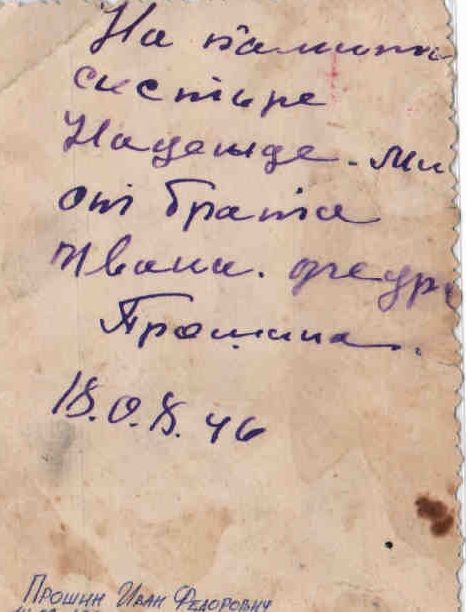 На память
систыре
Надежде. Ми
от брата
Ивана. Федро
Прошина.
18.08.46
Прошин Иван Федорович